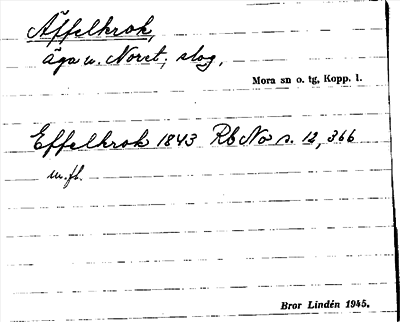 Äffelkrok,
äga u. Noret; slog,
Mora sn o. tg, Kopp. l.
Effelkrok 1843 Rb No s. 12, 366
m.fl.
Bror Lindén 1945.